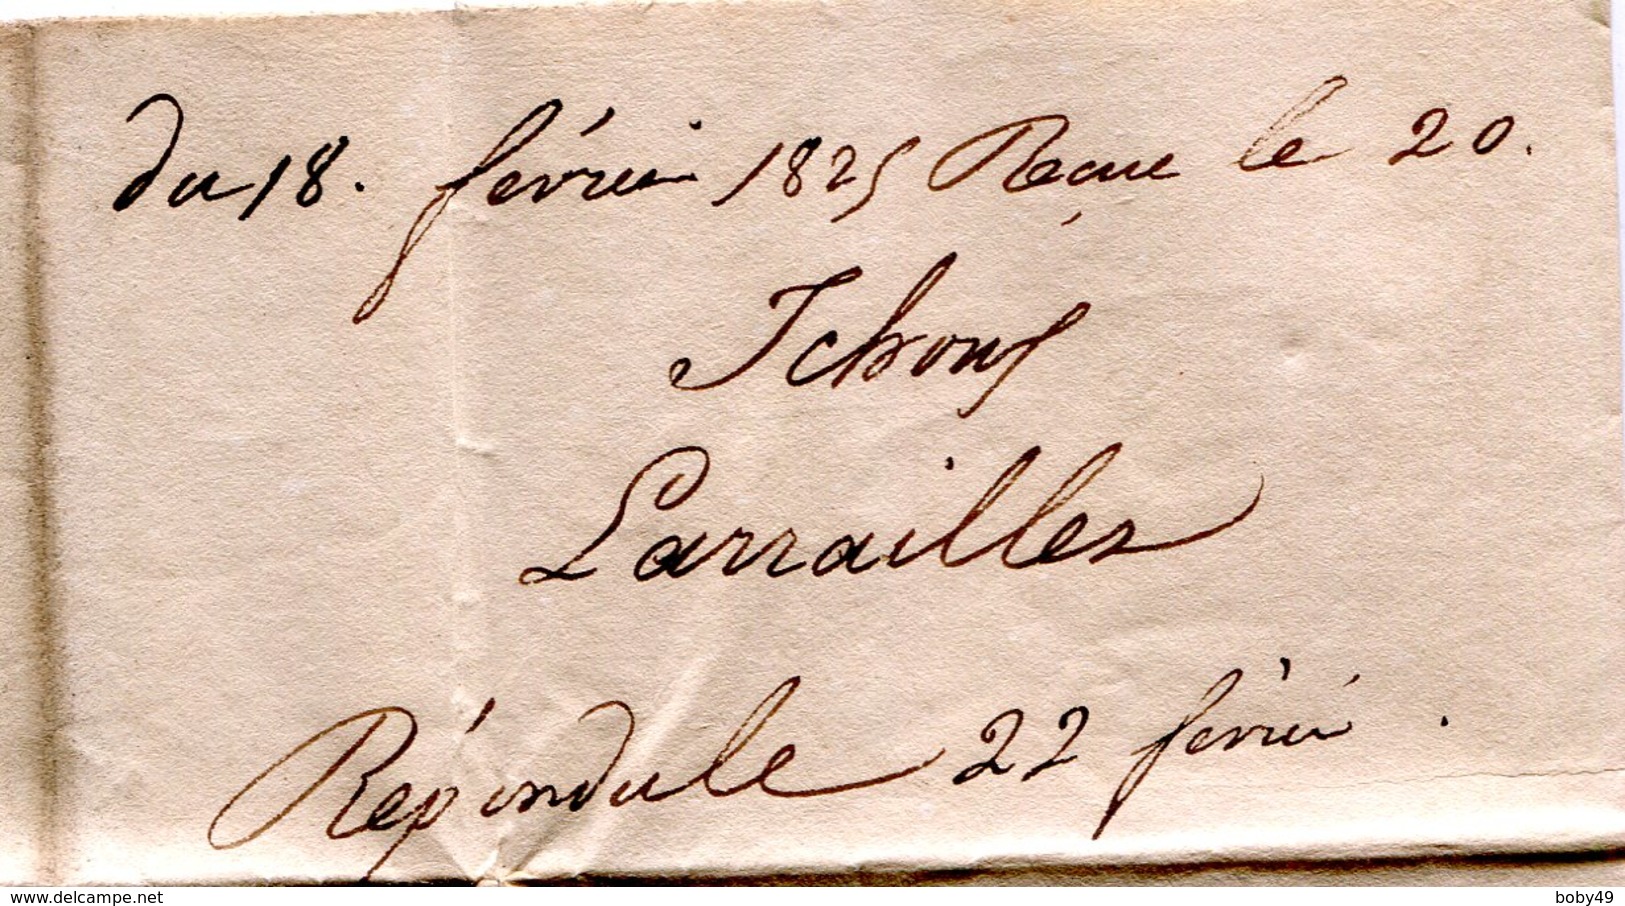 du 18. février 1825 Reçue le 20.
Ichous
Larrailles
Répondu le 22 février.
delcampe.net
boby49